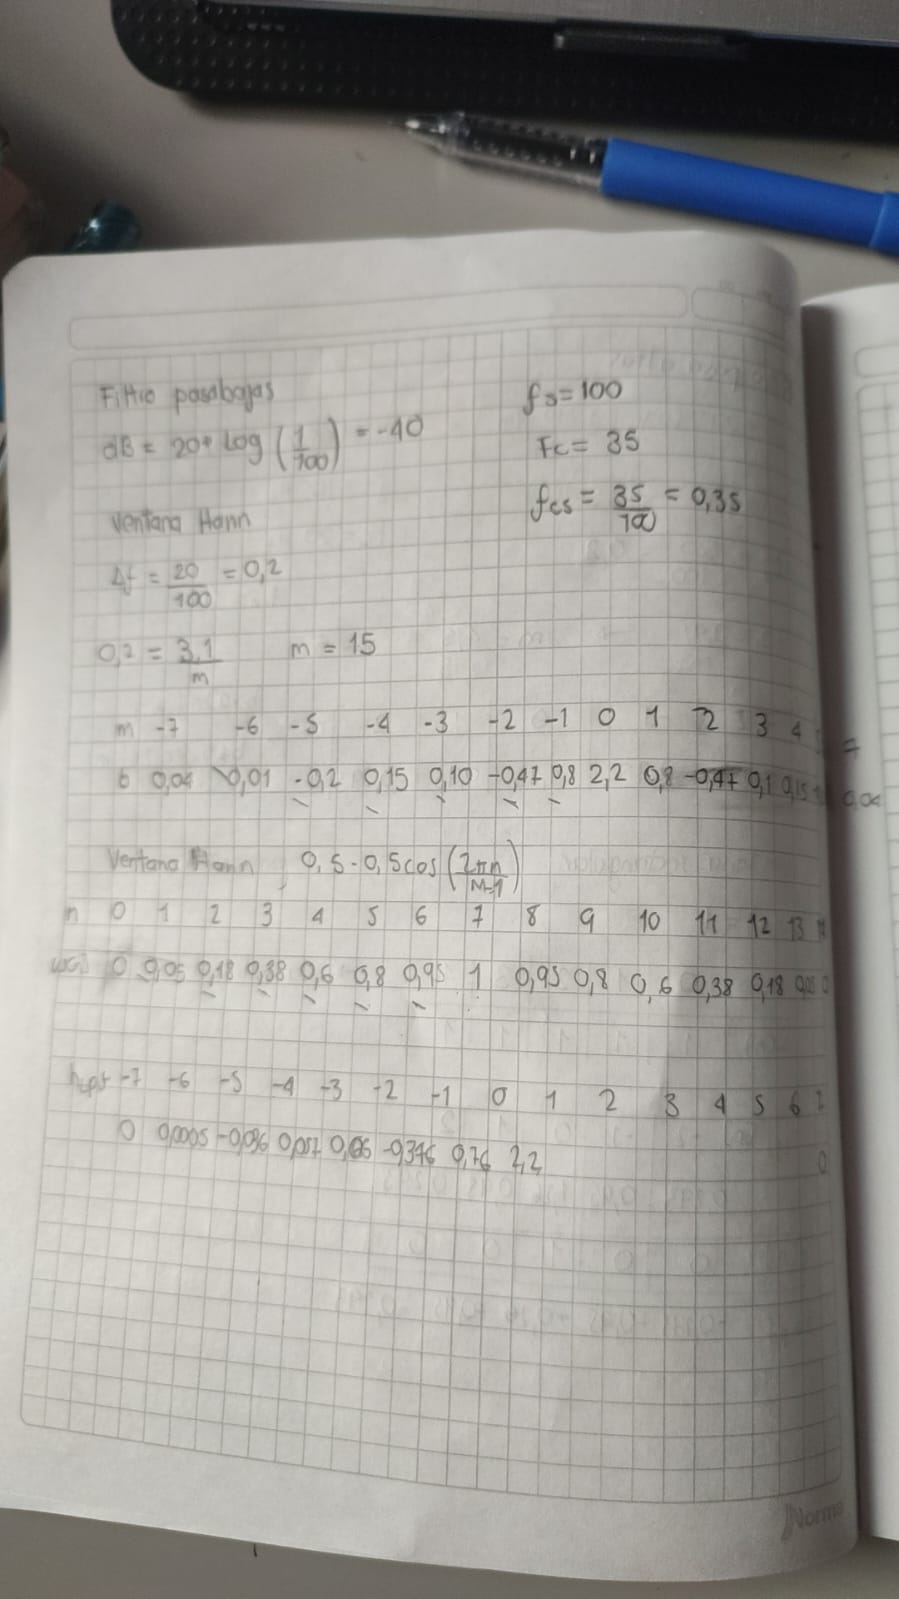 Filtro pasabajas
fs=100
dB = 20* Log (1/100) = -40
Fc = 35
Ventana Hann
fcs = 35/100 = 0,35
Δf = 20/100 = 0,2
0,2 = 3,1/m m = 15
m -7 -6 -5 -4 -3 -2 -1 0 1 2 3 4 7
b 0,04 0,01 -0,2 0,15 0,10 -0,47 0,8 2,2 0,8 -0,47 0,1 0,15 0,04
Ventana Hann 0,5-0,5cos(2πn/M-1)
n 0 1 2 3 4 5 6 7 8 9 10 11 12 13
0 0,05 0,18 0,38 0,6 0,8 0,95 1 0,95 0,8 0,6 0,38 0,18 0,05 0
-7 -6 -5 -4 -3 -2 -1 0 1 2 3 4 5 6 7
0 0,0005 -0,036 0,057 0,06 -0,376 0,76 2,2 0
Norma